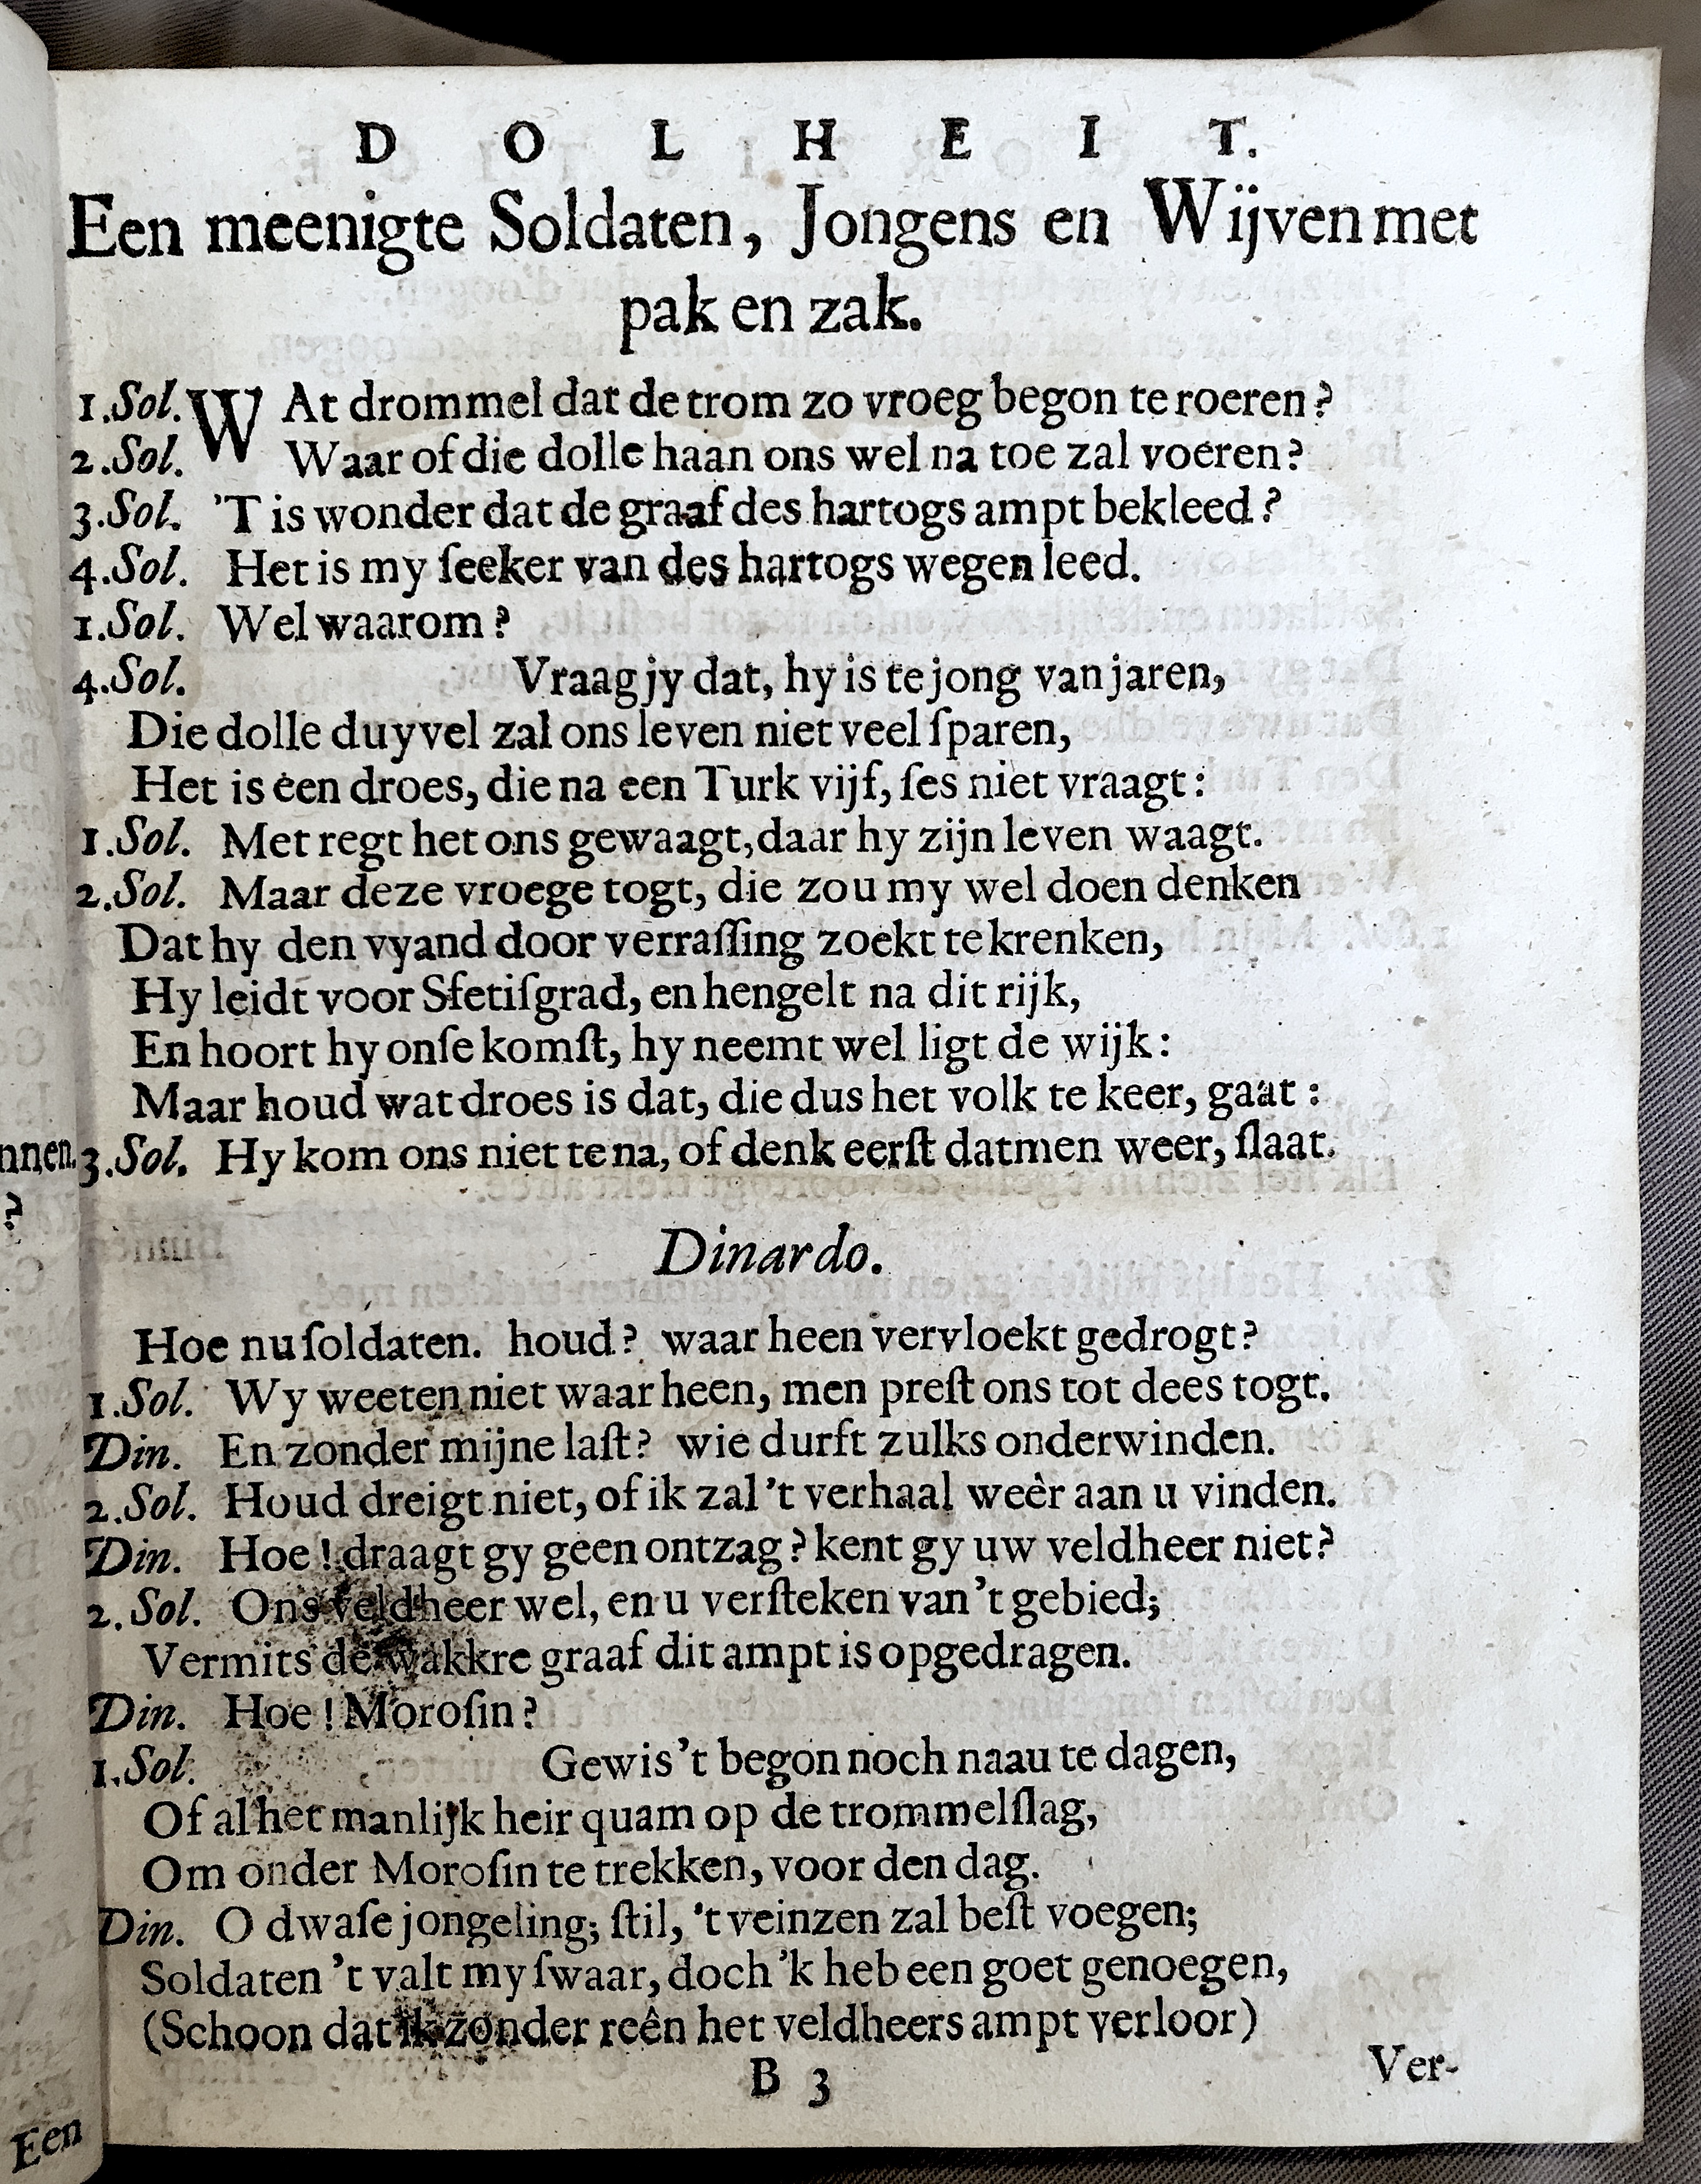 D O L H E I T.
Een meenigte Soldaten, Jongens en Wijven met
pak en zak.
1.Sol. WAt drommel dat de trom zo vroeg begon te roeren?
2.Sol. Waar of die dolle haan ons wel na toe zal voeren?
3.Sol. 'T is wonder dat de graaf des hartogs ampt bekleed?
4.Sol. Het is my ſeeker van des hartogs wegen leed.
1.Sol. Wel waarom?
4.Sol. Vraag jy dat, hy is te jong van jaren,
Die dolle duyvel zal ons leven niet veel ſparen,
Het is een droes, die na een Turk vijf, ſes niet vraagt:
1.Sol. Met regt het ons gewaagt, daar hy zijn leven waagt.
2.Sol. Maar deze vroege togt, die zou my wel doen denken
Dat hy den vyand door verraſſing zoekt te krenken,
Hy leidt voor Sfetiſgrad, en hengelt na dit rijk,
En hoort hy onſe komſt, hy neemt wel ligt de wijk:
Maar houd wat droes is dat, die dus het volk te keer, gaat:
3.Sol. Hy kom ons niet te na, of denk eerſt datmen weer, ſlaat.
Dinardo.
Hoe nu ſoldaten. houd? waar heen vervloekt gedrogt?
1.Sol. Wy weeten niet waar heen, men preſt ons tot dees togt.
Din. En zonder mijne laſt? wie durft zulks onderwinden.
2.Sol. Houd dreigt niet, of ik zal 't verhaal weêr aan u vinden.
Din. Hoe! draagt gy geen ontzag? kent gy uw veldheer niet?
2.Sol. Ons veldheer wel, en u verſteken van 't gebied;
Vermits de wakkre graaf dit ampt is opgedragen.
Din. Hoe! Moroſin?
1.Sol. Gewis 't begon noch naau te dagen,
Of al het manlijk heir quam op de trommelſlag,
Om onder Moroſin te trekken, voor den dag.
Din. O dwaſe jongeling; ſtil, 't veinzen zal beſt voegen;
Soldaten 't valt my ſwaar, doch 'k heb een goet genoegen,
(Schoon dat ik zonder reên het veldheers ampt verloor)
B 3
Ver-
nnen.
?
Een